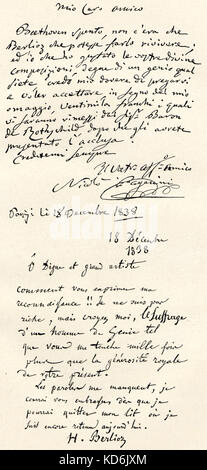 Mio Caro amico
Beethoven spento, non c'era che
Berlioz che potesse farlo rivivere;
ed io che ho gustato le vostre divine
composizioni degne di un genio qual
siete credo mio dovere di pregarvi
a voler accettare, in segno del mio
omaggio, ventimila franchi i quali
vi saranno rimessi dal Sigr Baron
de Rothschild dopo che gli avrete
presentato l'acclusa.
Credetemi sempre
Il Vostro affmo amico
Nicolò Paganini
Parigi Le 18 Decembre 1838
18 Décembre
1838
Ô Digne et grand artiste
Comment vous exprimer ma
reconnaissance!! Je ne suis pas
riche, mais croyez moi, le suffrage
d'un homme de Génie tel
que vous me touche mille fois
plus que la générosité royale
de votre présent.
Les paroles me manquent, je
courrai vous embrasser dès que je
pourrai quitter mon lit où je
suis encore retenu aujourd'hui.
H. Berlioz
alamy